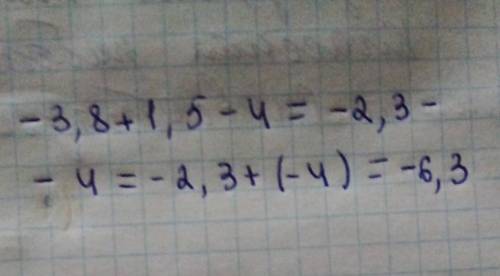 -3,8+1,5-4=-2,3-
-4=-2,3+(-4)=-6,3